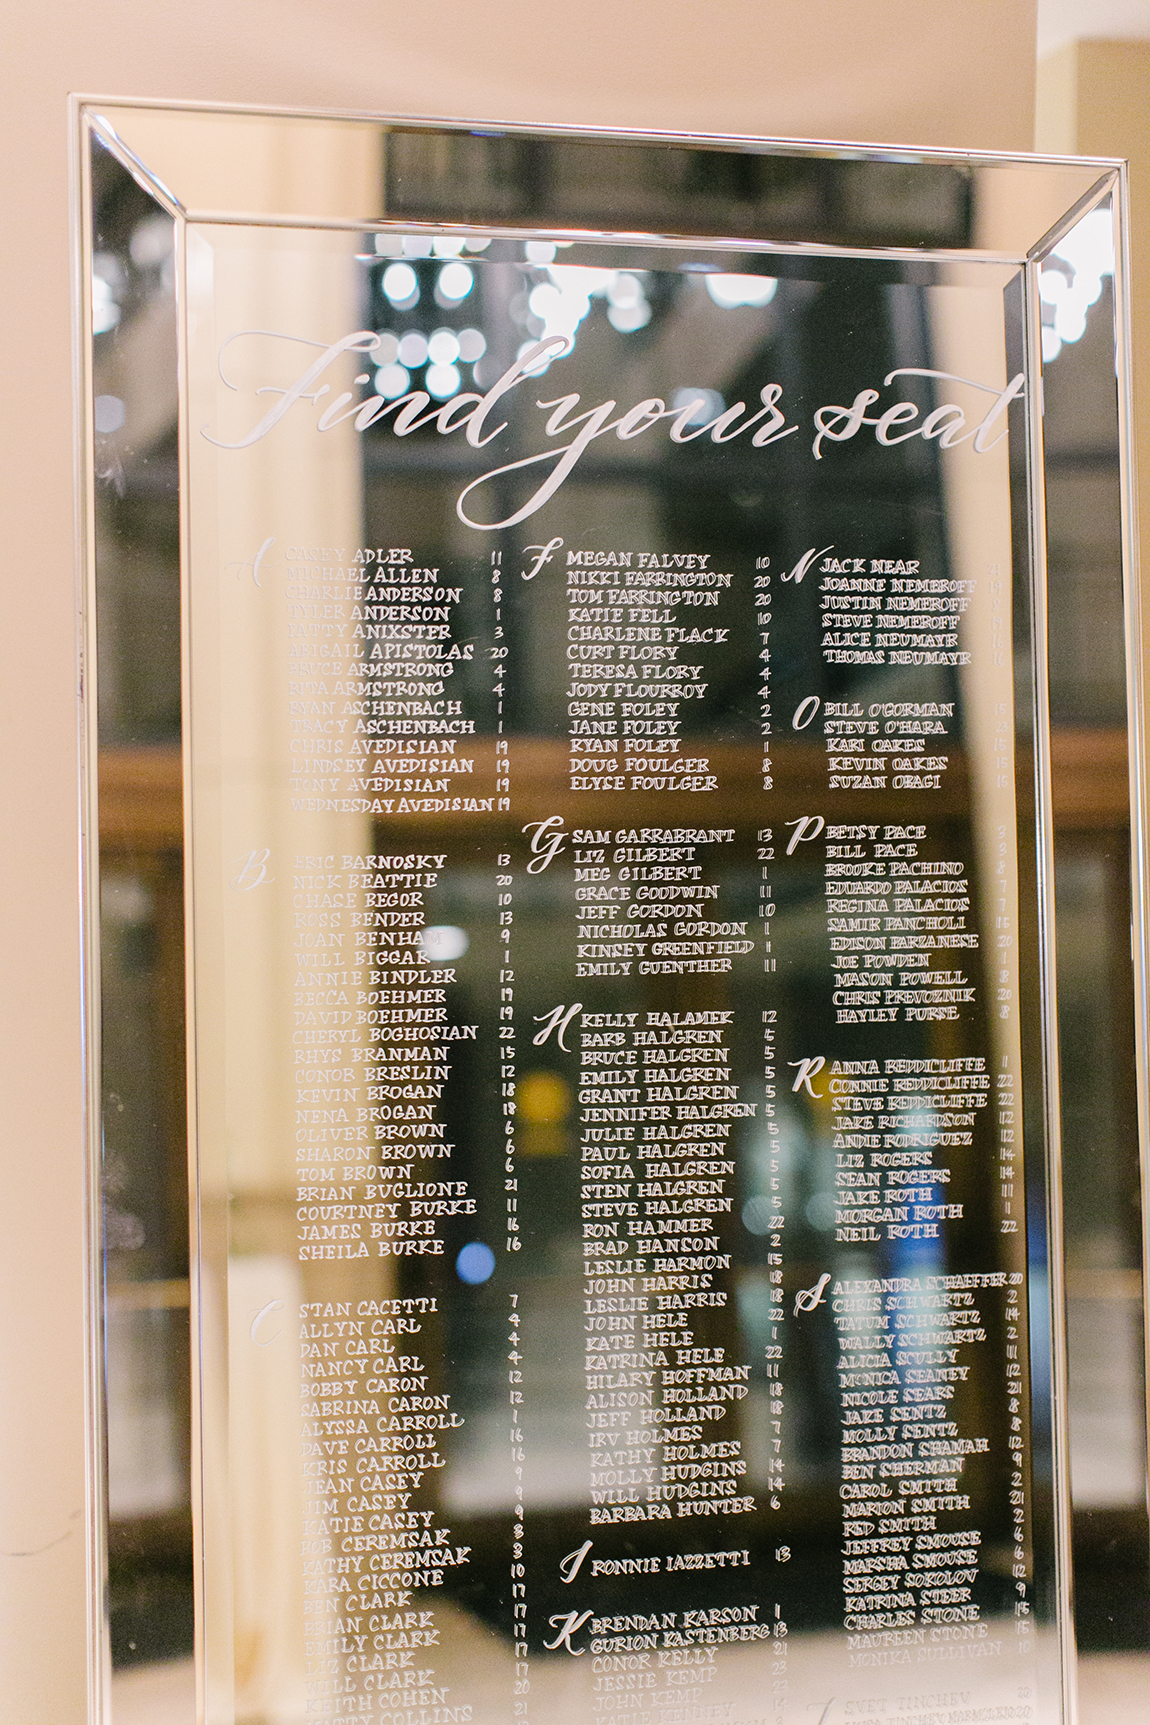 Find your seat
A CASEY ADLER 11
MICHAEL ALLEN 8
CHARLIE ANDERSON 8
TYLER ANDERSON 1
PATTY ANIXSTER 3
ABIGAIL APISTOLAS 20
BRUCE ARMSTRONG 4
RITA ARMSTRONG 4
RYAN ASCHENBACH 1
TRACY ASCHENBACH 1
CHRIS AVEDISIAN 19
LINDSEY AVEDISIAN 19
TONY AVEDISIAN 19
WEDNESDAY AVEDISIAN 19
B ERIC BARNOSKY 13
NICK BEATTIE 20
CHASE BEGOR 10
ROSS BENDER 13
JOAN BENHAM 9
WILL BIGGAR 1
ANNIE BINDLER 12
BECCA BOEHMER 19
DAVID BOEHMER 19
CHERYL BOGHOSIAN 22
RHYS BRANMAN 15
CONOR BRESLIN 12
KEVIN BROGAN 18
NENA BROGAN 18
OLIVER BROWN 6
SHARON BROWN 6
TOM BROWN 6
BRIAN BUGLIONE 21
COURTNEY BURKE 11
JAMES BURKE 16
SHEILA BURKE 16
C STAN CACETTI 7
ALLYN CARL 4
DAN CARL 4
NANCY CARL 4
BOBBY CARON 12
SABRINA CARON 12
ALYSSA CARROLL 1
DAVE CARROLL 16
KRIS CARROLL 16
JEAN CASEY 9
JIM CASEY 9
KATIE CASEY 9
BOB CEREMSAK 3
KATHY CEREMSAK 3
KARA CICCONE 10
BEN CLARK 17
BRIAN CLARK 17
EMILY CLARK 17
LIZ CLARK 17
WILL CLARK 17
KEITH COHEN 20
COLLINS 21
F MEGAN FALVEY 10
NIKKI FARRINGTON 20
TOM FARRINGTON 20
KATIE FELL 10
CHARLENE FLACK 7
CURT FLORY 4
TERESA FLORY 4
JODY FLOURROY 4
GENE FOLEY 2
JANE FOLEY 2
RYAN FOLEY 1
DOUG FOULGER 8
ELYSE FOULGER 8
G SAM GARRABRANT 13
LIZ GILBERT 22
MEG GILBERT 1
GRACE GOODWIN 11
JEFF GORDON 10
NICHOLAS GORDON 1
KINSEY GREENFIELD 1
EMILY GUENTHER 11
H KELLY HALAMEK 12
BARB HALGREN 5
BRUCE HALGREN 5
EMILY HALGREN 5
GRANT HALGREN 5
JENNIFER HALGREN 5
JULIE HALGREN 5
PAUL HALGREN 5
SOFIA HALGREN 5
STEN HALGREN 5
STEVE HALGREN 5
RON HAMMER 22
BRAD HANSON 2
LESLIE HARMON 15
JOHN HARRIS 18
LESLIE HARRIS 18
JOHN HELE 22
KATE HELE 1
KATRINA HELE 22
HILARY HOFFMAN 11
ALISON HOLLAND 18
JEFF HOLLAND 18
IRV HOLMES 7
KATHY HOLMES 7
MOLLY HUDGINS 14
WILL HUDGINS 14
BARBARA HUNTER 6
I RONNIE IAZZETTI 13
K BRENDAN KARSON 1
GURION KASTENBERG 13
CONOR KELLY 21
JESSIE KEMP 23
JOHN KEMP
KATIE
N JACK NEAR
JOANNE NEMEROFF
JUSTIN NEMEROFF
STEVE NEMEROFF
ALICE NEUMAYR
THOMAS NEUMAYR
O BILL O'GORMAN 15
STEVE O'HARA 23
KARI OAKES 15
KEVIN OAKES 15
SUZAN OBAGI 15
P BETSY PACE 3
BILL PACE 3
BROOKE PACHINO 8
EDUARDO PALACIOS 7
REGINA PALACIOS 7
SAMIR PANCHOLI 15
EDISON PARZANESE 20
JOE POWDEN 1
MASON POWELL 8
CHRIS PREVOZNIK 20
HAYLEY PURSE 8
R ANNA REDDICLIFFE 1
CONNIE REDDICLIFFE 22
STEVE REDDICLIFFE 22
JAKE RICHARDSON 12
ANDIE RODRIGUEZ 12
LIZ ROGERS 14
SEAN ROGERS 14
JAKE ROTH 11
MORGAN ROTH 1
NEIL ROTH 22
S ALEXANDRA SCHAEFFER 20
CHRIS SCHWARTZ 2
TATUM SCHWARTZ 14
WALLY SCHWARTZ 2
ALICIA SCULLY 11
MONICA SEANEY 12
NICOLE SEARS 21
JAKE SENTZ 8
MOLLY SENTZ 8
BRANDON SHAMAH 12
BEN SHERMAN 9
CAROL SMITH 2
MARION SMITH 21
RED SMITH 2
JEFFREY SMOUSE 6
MARSHA SMOUSE 6
SERGEY SOKOLOV 12
KATRINA STEER 9
CHARLES STONE 15
MAUREEN STONE 15
MONIKA SULLIVAN 10
T SVET TINCHEV
TINCHEV